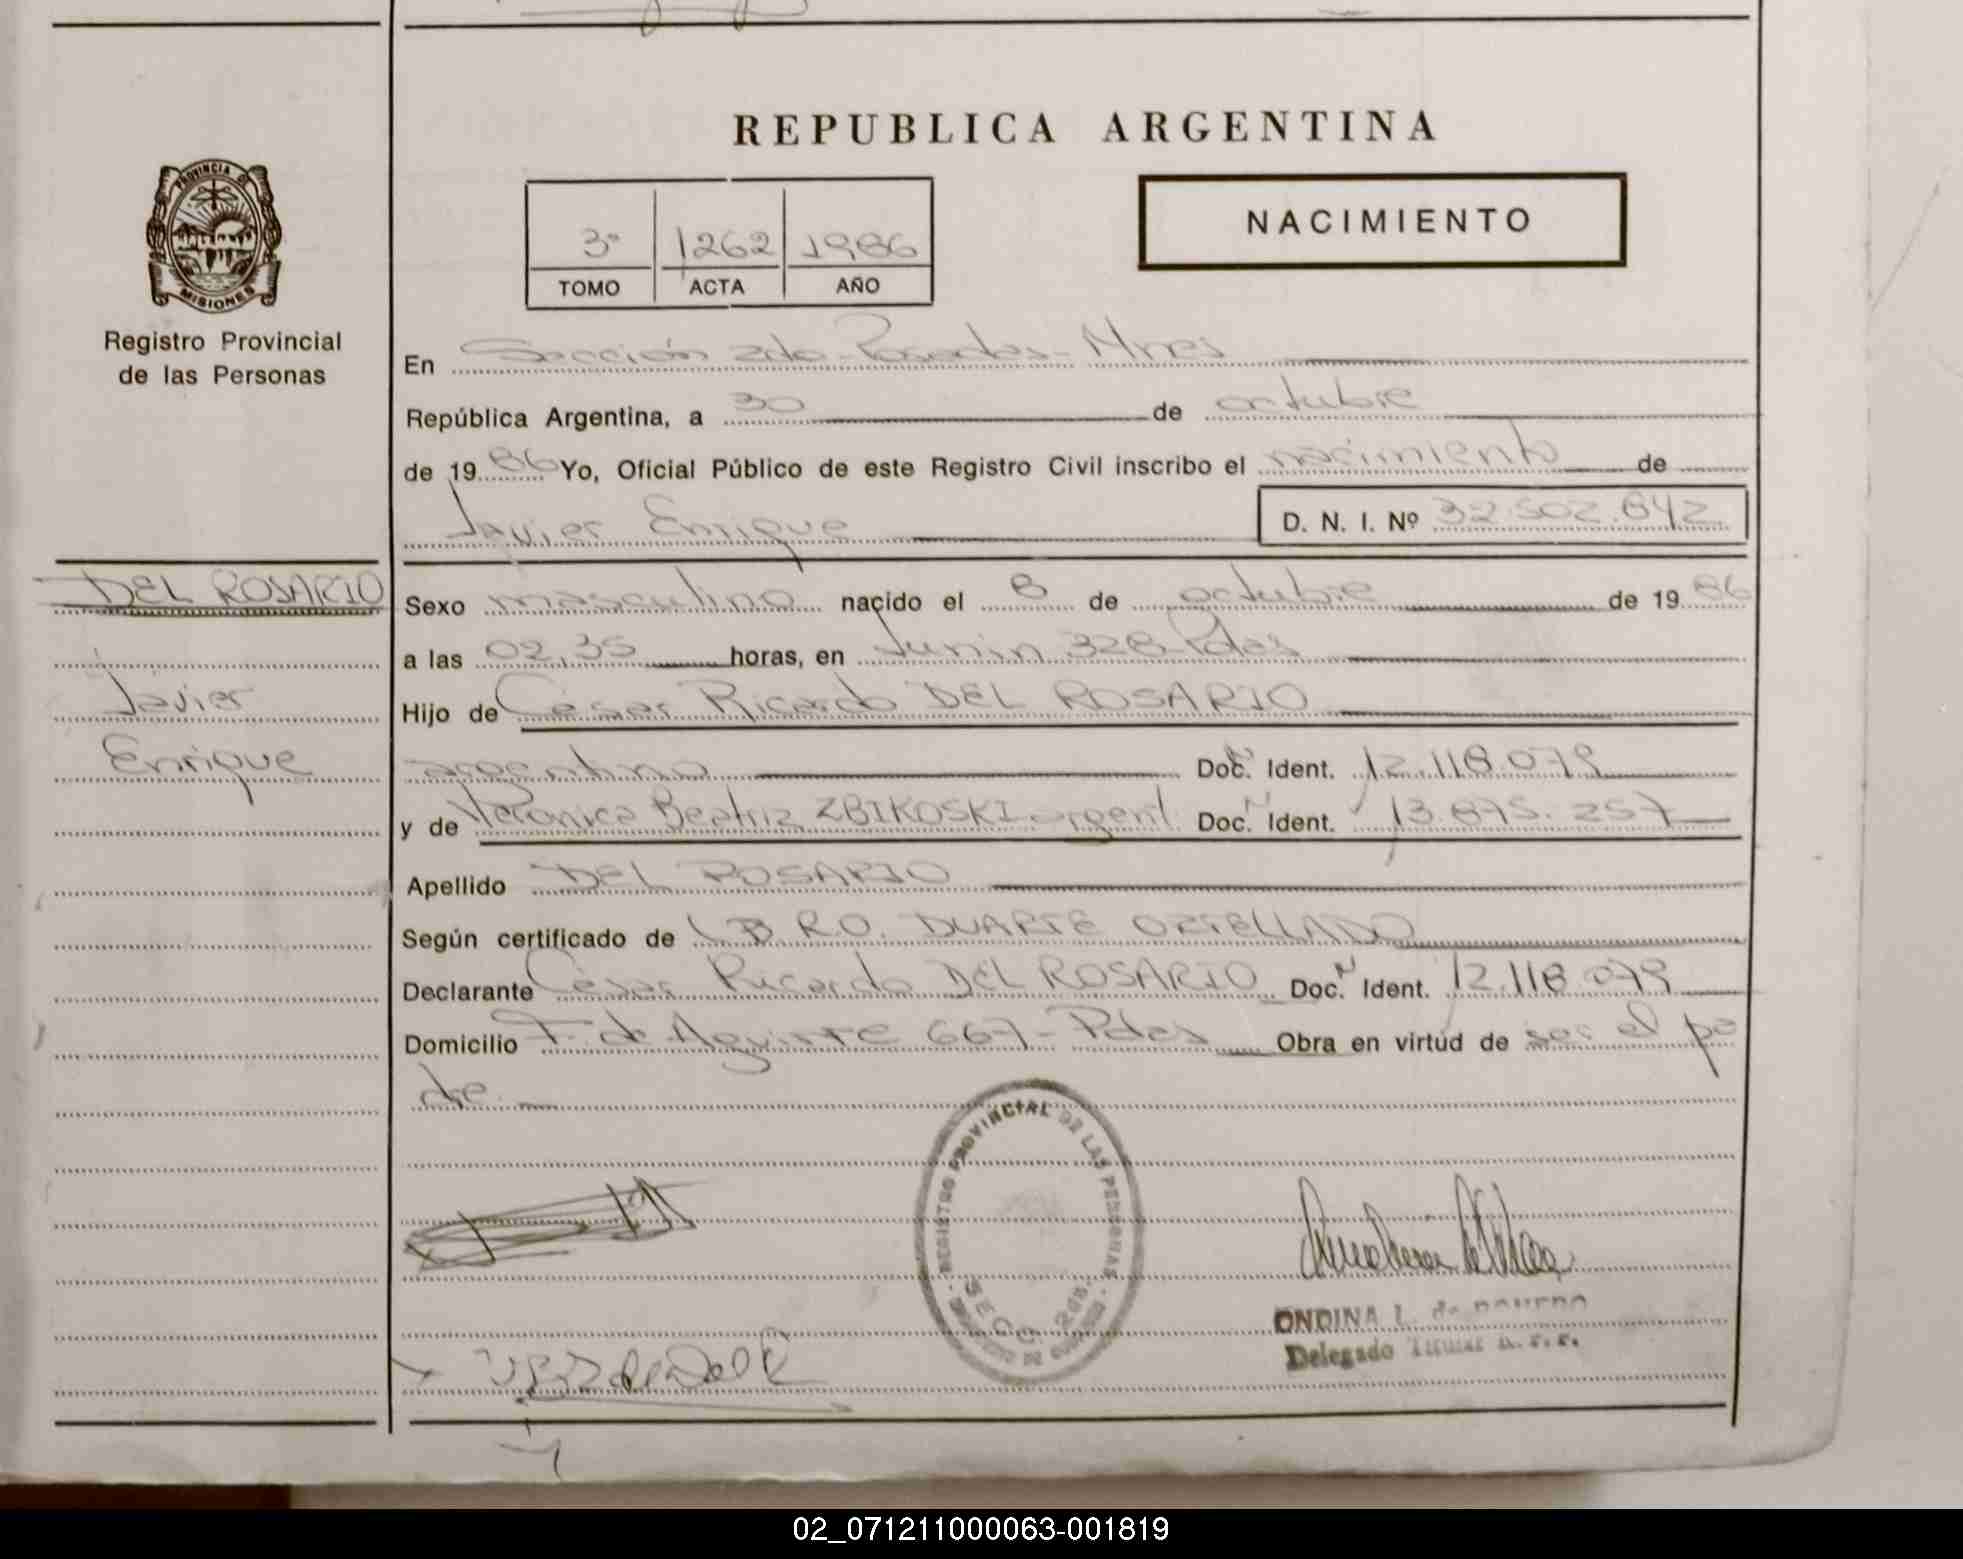 REPUBLICA ARGENTINA
PROVINCIA DE
MISIONES
Registro Provincial
de las Personas
NACIMIENTO
3º 1262 1986
TOMO ACTA AÑO
En Sección 2da - Posadas - Mnes
República Argentina, a 30 de octubre
de 19 86 Yo, Oficial Público de este Registro Civil inscribo el nacimiento de
Javier Enrique D. N. I. Nº 32.502.842
DEL ROSARIO
Javier
Enrique
Sexo masculino nacido el 8 de octubre de 19 86
a las 02,35 horas, en Junin 328-Pdas
Hijo de César Ricardo DEL ROSARIO
argentino Doc. Ident. 12.118.079
y de Veronica Beatriz ZBIKOSKI argent Doc. Ident. 13.875.257
Apellido DEL ROSARIO
Según certificado de B R.O. DUARTE ORTELLADO
Declarante César Ricardo DEL ROSARIO Doc. Ident. 12.118.079
Domicilio F. de Aguirre 667 - Pdas Obra en virtud de ser el pa
dre.
REGISTRO PROVINCIAL DE LAS PERSONAS
SECC. 2da.
ONDINA L. de ROMERO
Delegado Titular
02_071211000063-001819